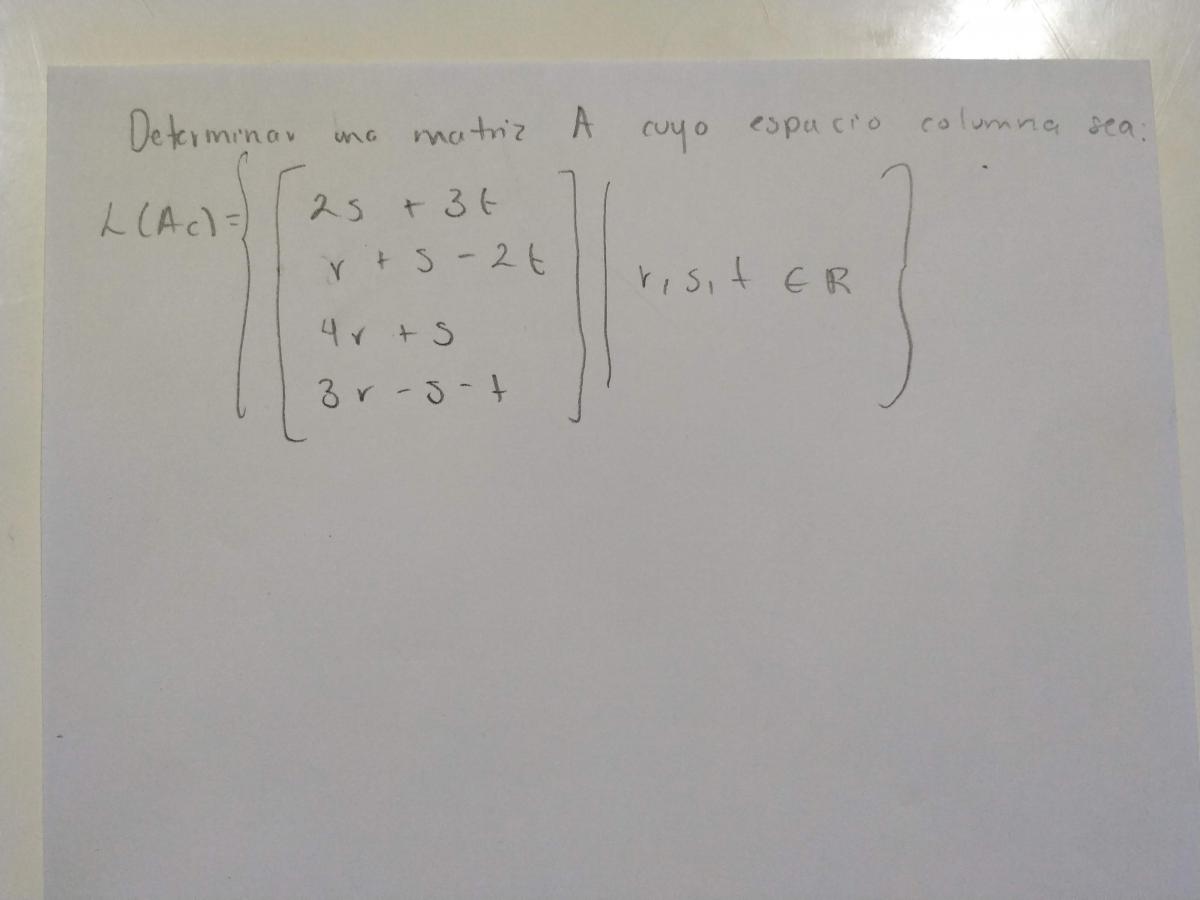 Determinar una matriz A cuyo espacio columna sea:
L(Ac) = { [ 2s + 3t
r + s - 2t
4r + s
3r - s - t ] | r, s, t ∈ ℝ }